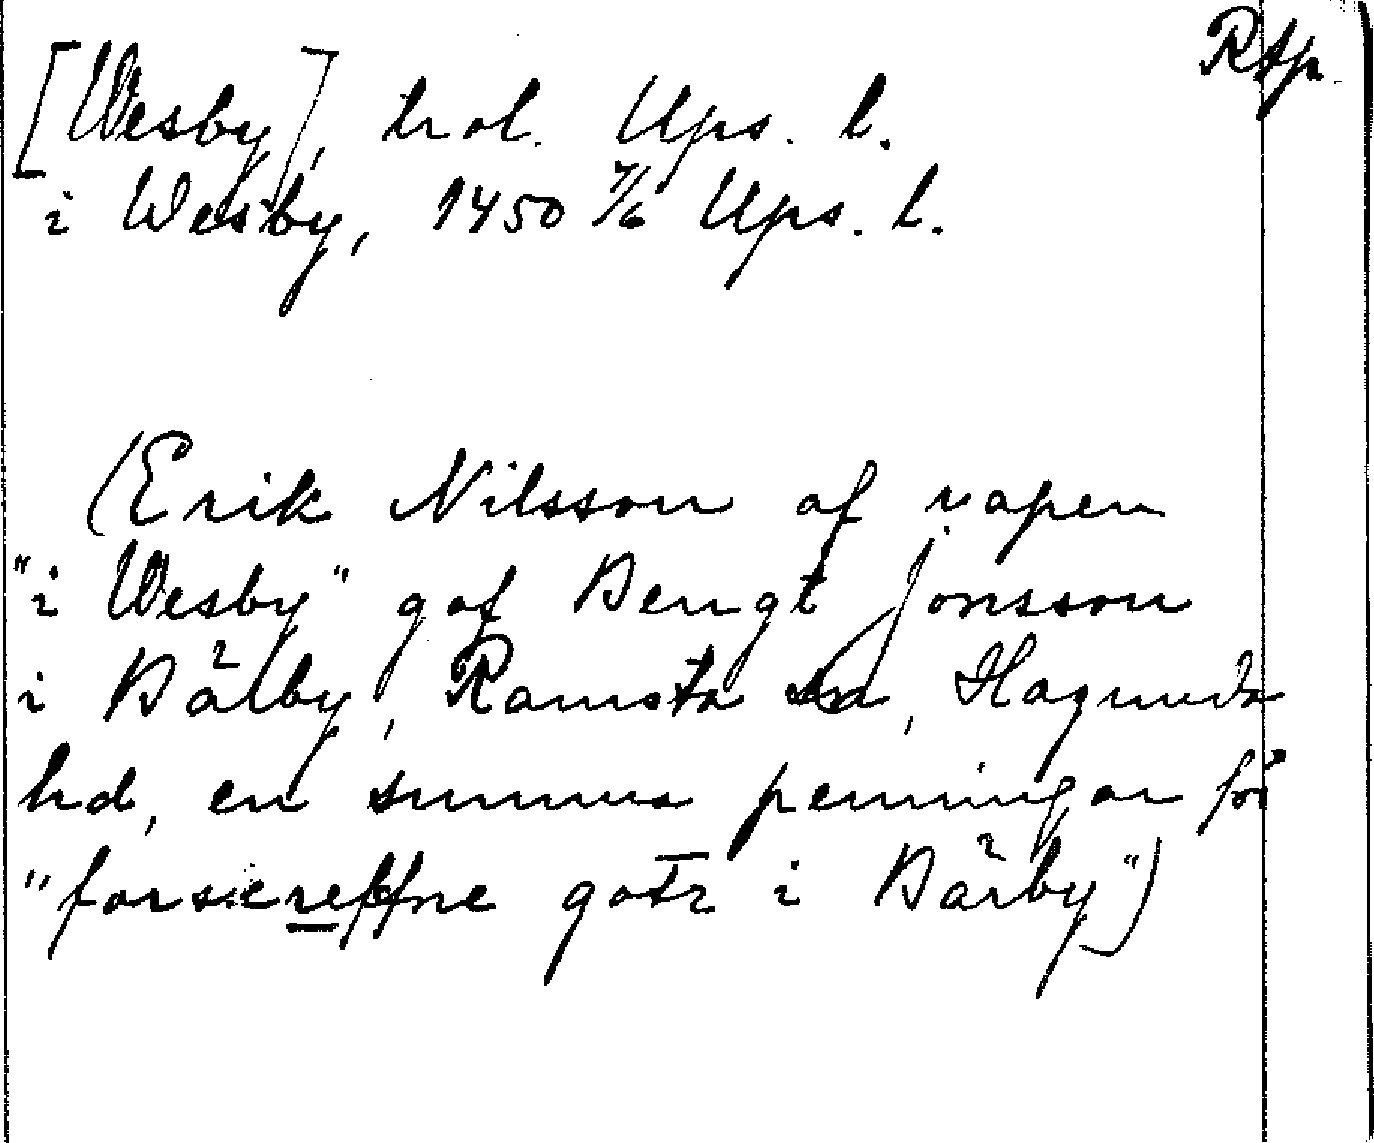 Rtp.
[Wesby], trol. Ups. l.
i Wesby, 1450 7/6 Ups. l.
(Erik Nilsson af vapen
"i Wesby" gaf Bengt Jonsson
i Bälby, Ramsta sn, Hagunda
hd, en summa penningar för
"forscreffne gotz i Bärby")